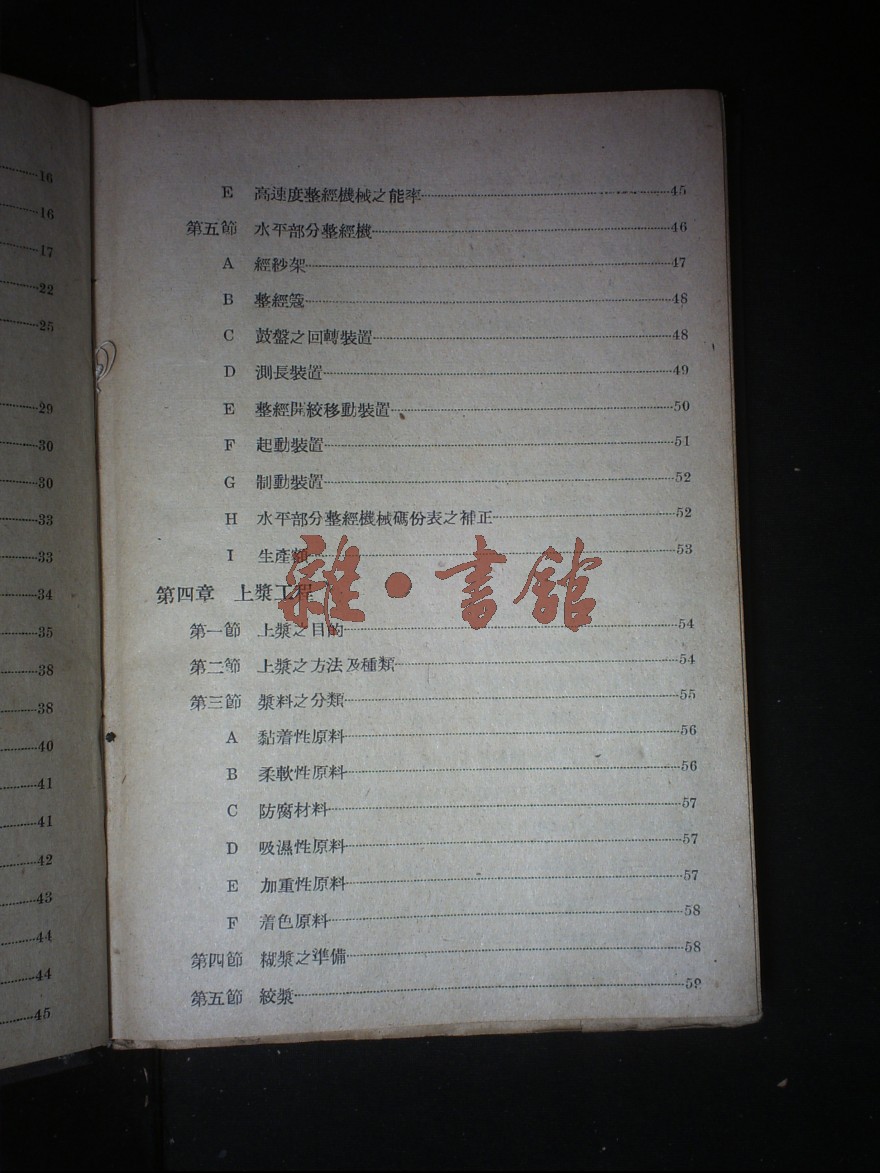 16
16
17
22
25
29
30
30
33
33
34
35
38
38
40
41
41
42
43
44
44
45
E 高速度整經機械之能率 45
第五節 水平部分整經機 46
A 經紗架 47
B 整經筬 48
C 鼓盤之回轉裝置 48
D 測長裝置 49
E 整經開絞移動裝置 50
F 起動裝置 51
G 制動裝置 52
H 水平部分整經機械碼份表之補正 52
I 生產額 53
第四章 上漿工程
第一節 上漿之目的 54
第二節 上漿之方法及種類 54
第三節 漿料之分類 55
A 黏着性原料 56
B 柔軟性原料 56
C 防腐材料 57
D 吸濕性原料 57
E 加重性原料 57
F 着色原料 58
第四節 糊漿之準備 58
第五節 絞漿 59
雜·書館